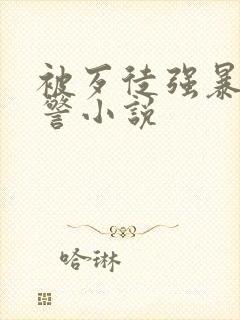 被歹徒强暴
警小说
哈琳